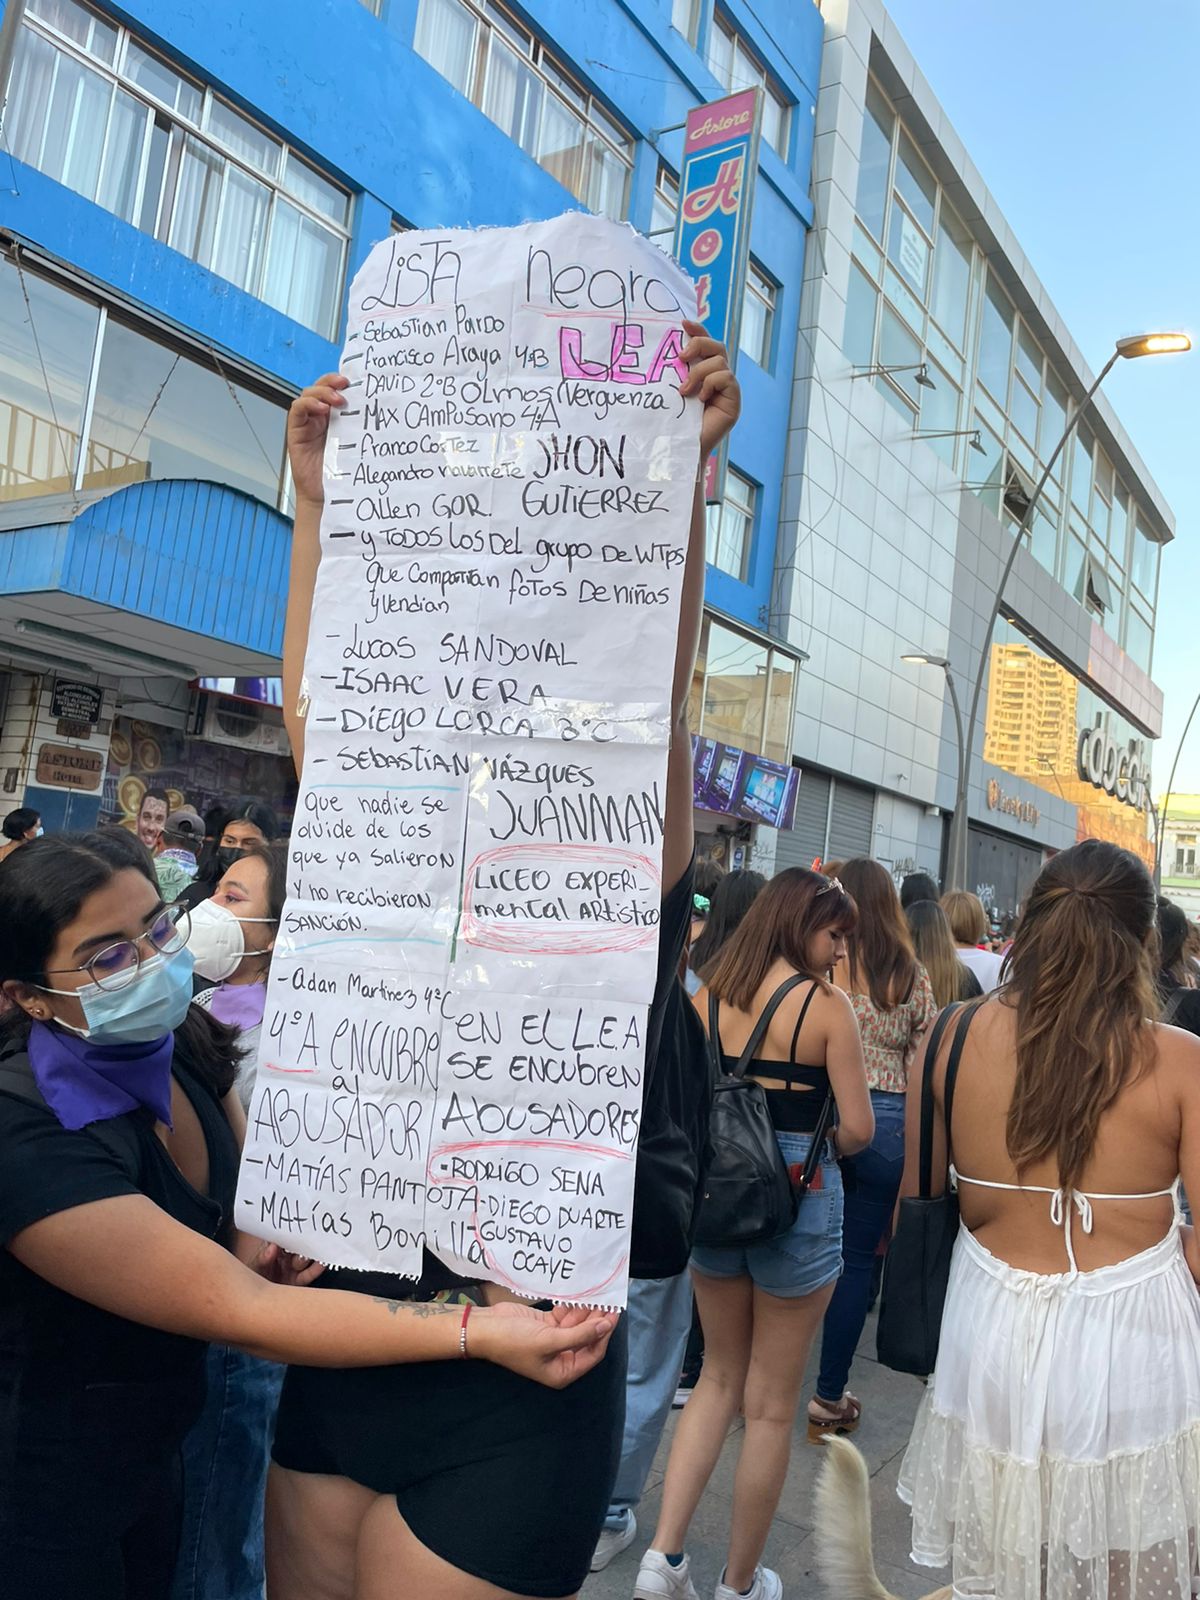 Astore
Hot
LiSTA negra
- Sebastian Pardo
LEA
- Francisco Araya 4ºB
- DAVID 2ºB OLmos (Verguenza)
- MAX CAMPUSano 4ºA
- Franco Cortez
JHON
- Alegandro navarrete
- allen GOR. GUTIERREZ
- y TODOS LOS DeL grupo De WTps
que Compartian fotos De niñas
y vendian
- Lucas SANDOVAL
- ISAAC VERA
- DiEGO LORCA 3ºC
- SEBASTIAN VÁZQUES
JUANMAN
que nadie se
olvide de los
que ya Salieron
y no recibieron
SANCIÓN.
LiCEO EXPERI-
mental ARtistico
- Adan Martinez 4ºC
4ºA ENCUBRE
al
ABUSADOR
EN EL L.E.A
SE ENCUBREN
ABUSADORES
- MATÍAS PANTOJA
- MAtías Bonilla
- RODRIGO SENA
- DIEGO DUARTE
GUSTAVO
OCAYE
ASTORE
HOTEL